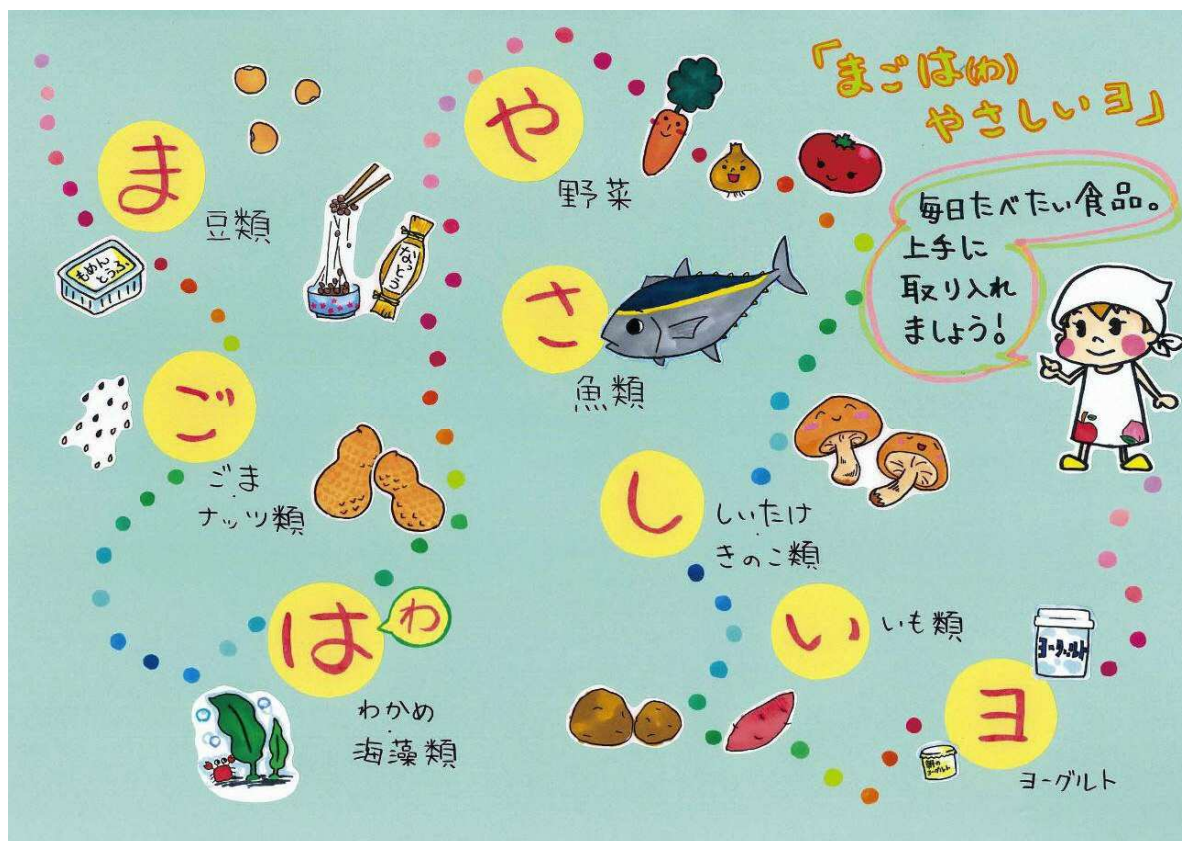 「まごは(わ)
やさしいヨ」
毎日たべたい食品。
上手に
取り入れ
ましょう!
ま
豆類
もめん
とうふ
なっとう
ご
ごま
・
ナッツ類
は
わ
わかめ
・
海藻類
や
野菜
さ
魚類
し
しいたけ
・
きのこ類
い
いも類
ヨ
ヨーグルト
ヨーグルト
ヨーグルト